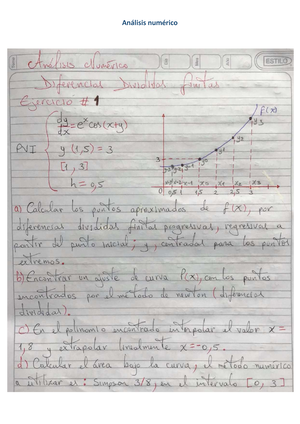 Análisis numérico
Análisis Numérico
ESTILO
Diferencias Divididas finitas
Ejercicio #1
dy/dx = eˣcos(x+y)
f(x)
PVI
y (1,5) = 3
[1, 3]
h = 0,5
3
0 0,5 1 1,5 2 2,5 3
a) Calcular los puntos aproximados de f(x), por
diferencias divididas finitas progresivas, regresivas a
partir del punto inicial; y, centradas para los puntos
extremos.
b) Encontrar un ajuste de curva P(x), con los puntos
encontrados por el método de newton (diferencias
divididas).
c) En el polinomio encontrado interpolar el valor x =
1,8 y extrapolar linealmente x = -0,5.
d) Calcular el área bajo la curva, el método numérico
a utilizar es: Simpson 3/8, en el intervalo [0, 3]